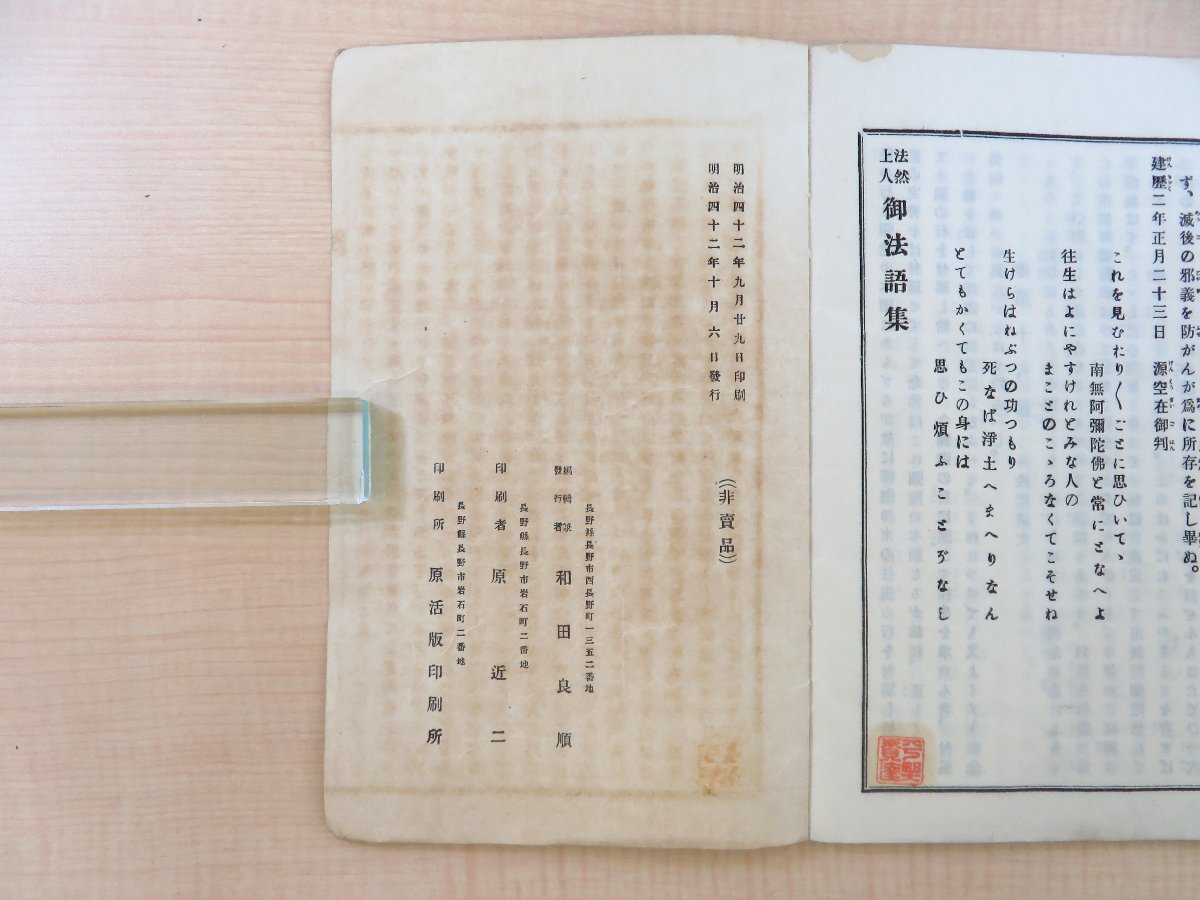 ず、滅後の邪義を防がんが爲に所存を記し畢ぬ。
建曆二年正月二十三日　源空在御判
これを見むたり〳〵ごとに思ひいて、
南無阿彌陀佛と常にとなへよ
往生はよにやすけれとみな人の
まことのこゝろなくてこそせね
生けらはねぶつの功つもり
死なば淨土へまへりなん
とてもかくてもこの身には
思ひ煩ふことぞなし
法然上人御法語集
明治四十二年九月廿九日印刷
明治四十二年十月六日發行
(非賣品)
長野縣長野市西長野町一三五二番地
編輯兼發行者　和田良順
長野縣長野市岩石町二番地
印刷者　原近二
長野縣長野市岩石町二番地
印刷所　原活版印刷所